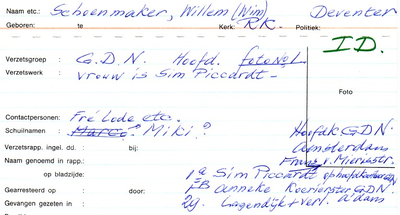 Naam etc.: Schoonmaker, Willem (Wim) Deventer
Geboren: te Kerk: R.K. Politiek:
I.D.
Verzetsgroep : G.D.N. Hoofd. foto NH
Verzetswerk : vrouw is Sim Piccardt -
Foto
Contactpersonen: Fré Lode etc.
Schuilnamen : Marco? Miki?
Hoofdk GDN.
Verzetsrapp. ingel. dd. : bij: Amsterdam
Naam genoemd in rapp.: Frans v. Mierisstr.
op bladzijde: 1a Sim Piccardt
Gearresteerd op : door: Anneke GDN.
Gevangen gezeten in : 2g. Lagendijk + verl. A'dam